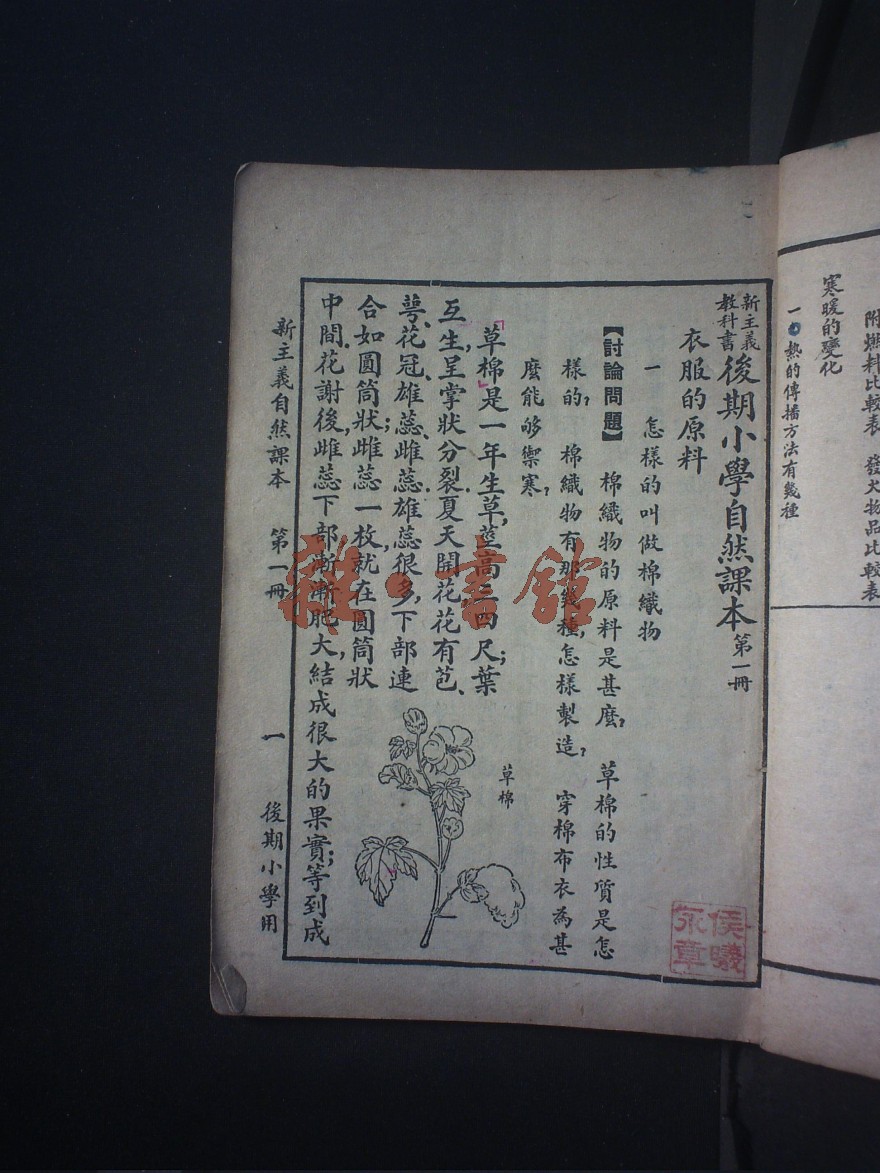 附燃料比較表　發火物品比較表
寒暖的變化
一　熱的傳播方法有幾種
新主義教科書 後期小學自然課本 第一冊
衣服的原料
一　怎樣的叫做棉織物
【討論問題】　棉織物的原料是甚麼？　草棉的性質是怎
樣的？　棉織物有那幾種，怎樣製造？　穿棉布衣為甚
麼能够禦寒？
「草棉」是一年生草，莖高三四尺；葉
互生，呈掌狀分裂．夏天開花，花有苞、
萼、花冠、雄蕊、雌蕊．雄蕊很多，下部連
合如圓筒狀；雌蕊一枚，就在圓筒狀
中間．花謝後，雌蕊下部漸漸肥大，結成很大的果實；等到成
草棉
新主義自然課本　第一冊　一　後期小學用
侯曦
永章
雜·書館